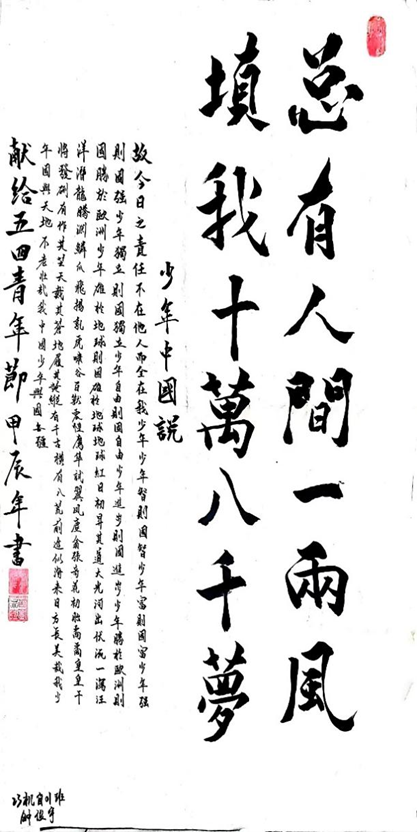 总有人間一兩風
填我十萬八千夢
少年中國說
故今日之責任不在他人而全在我少年少年智則國智少年富則國富少年强
則國强少年獨立則國獨立少年自由則國自由少年進步則國進步少年勝於歐洲則
國勝於歐洲少年雄於地球則國雄於地球紅日初昇其道大光河出伏流一瀉汪
洋潛龍騰淵鱗爪飛揚乳虎嘯谷百獸震惶鷹隼試翼風塵翕張奇花初胎矞矞皇皇干
將發硎有作其芒天戴其蒼地履其黃縱有千古橫有八荒前途似海來日方長美哉我少
年國與天地不老壯哉我中國少年與國無疆
献给五四青年節甲辰年書